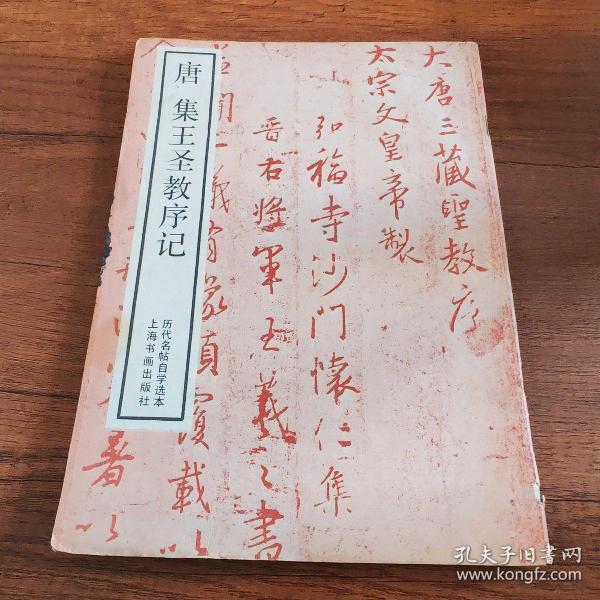 大唐三藏聖教序
太宗文皇帝製
弘福寺沙門懷仁集
晋右將軍王羲之書
蓋聞二儀有像顯覆載以
著以
唐 集王圣教序记
历代名帖自学选本
上海书画出版社
孔夫子旧书网
www.kongfz.com